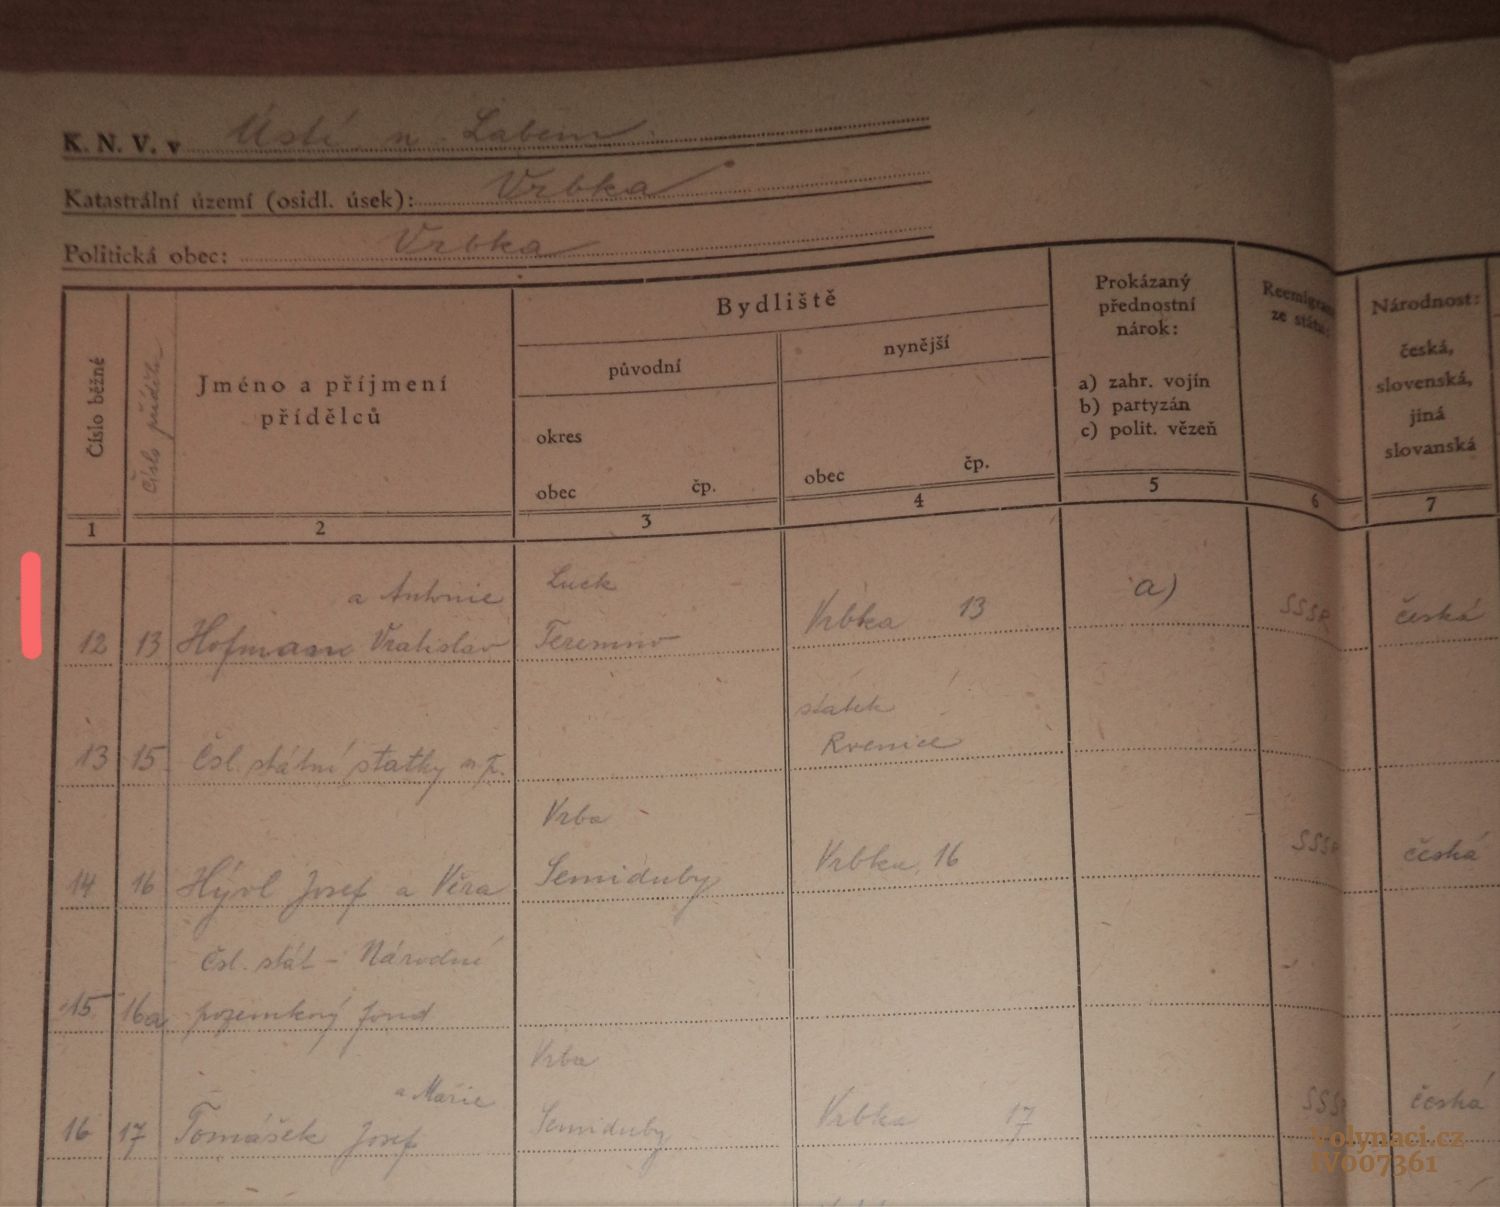 K. N. V. v Ústí n Labem
Katastrální území (osidl. úsek): Vrbka
Politická obec: Vrbka
Číslo běžné
Číslo přídělu
Jméno a příjmení
přídělců
Bydliště
původní
okres
obec čp.
nynější
obec čp.
Prokázaný
přednostní
nárok:
a) zahr. vojín
b) partyzán
c) polit. vězeň
Reemigrant
ze státu:
Národnost:
česká,
slovenská,
jiná
slovanská
1 2 3 4 5 6 7
a Antonie Luck
12 13 Hofmann Vratislav Teremno Vrbka 13 a) SSSR česká
statek
13 15 Čsl. státní statky n. p. Rvenice
Vrba
14 16 Hývl Josef a Věra Semiduby Vrbka 16 SSSR česká
Čsl. stát - Národní
15 16a pozemkový fond
Vrba
a Marie
16 17 Tomášek Josef Semiduby Vrbka 17 SSSR česká
Volynaci.cz
IV007361